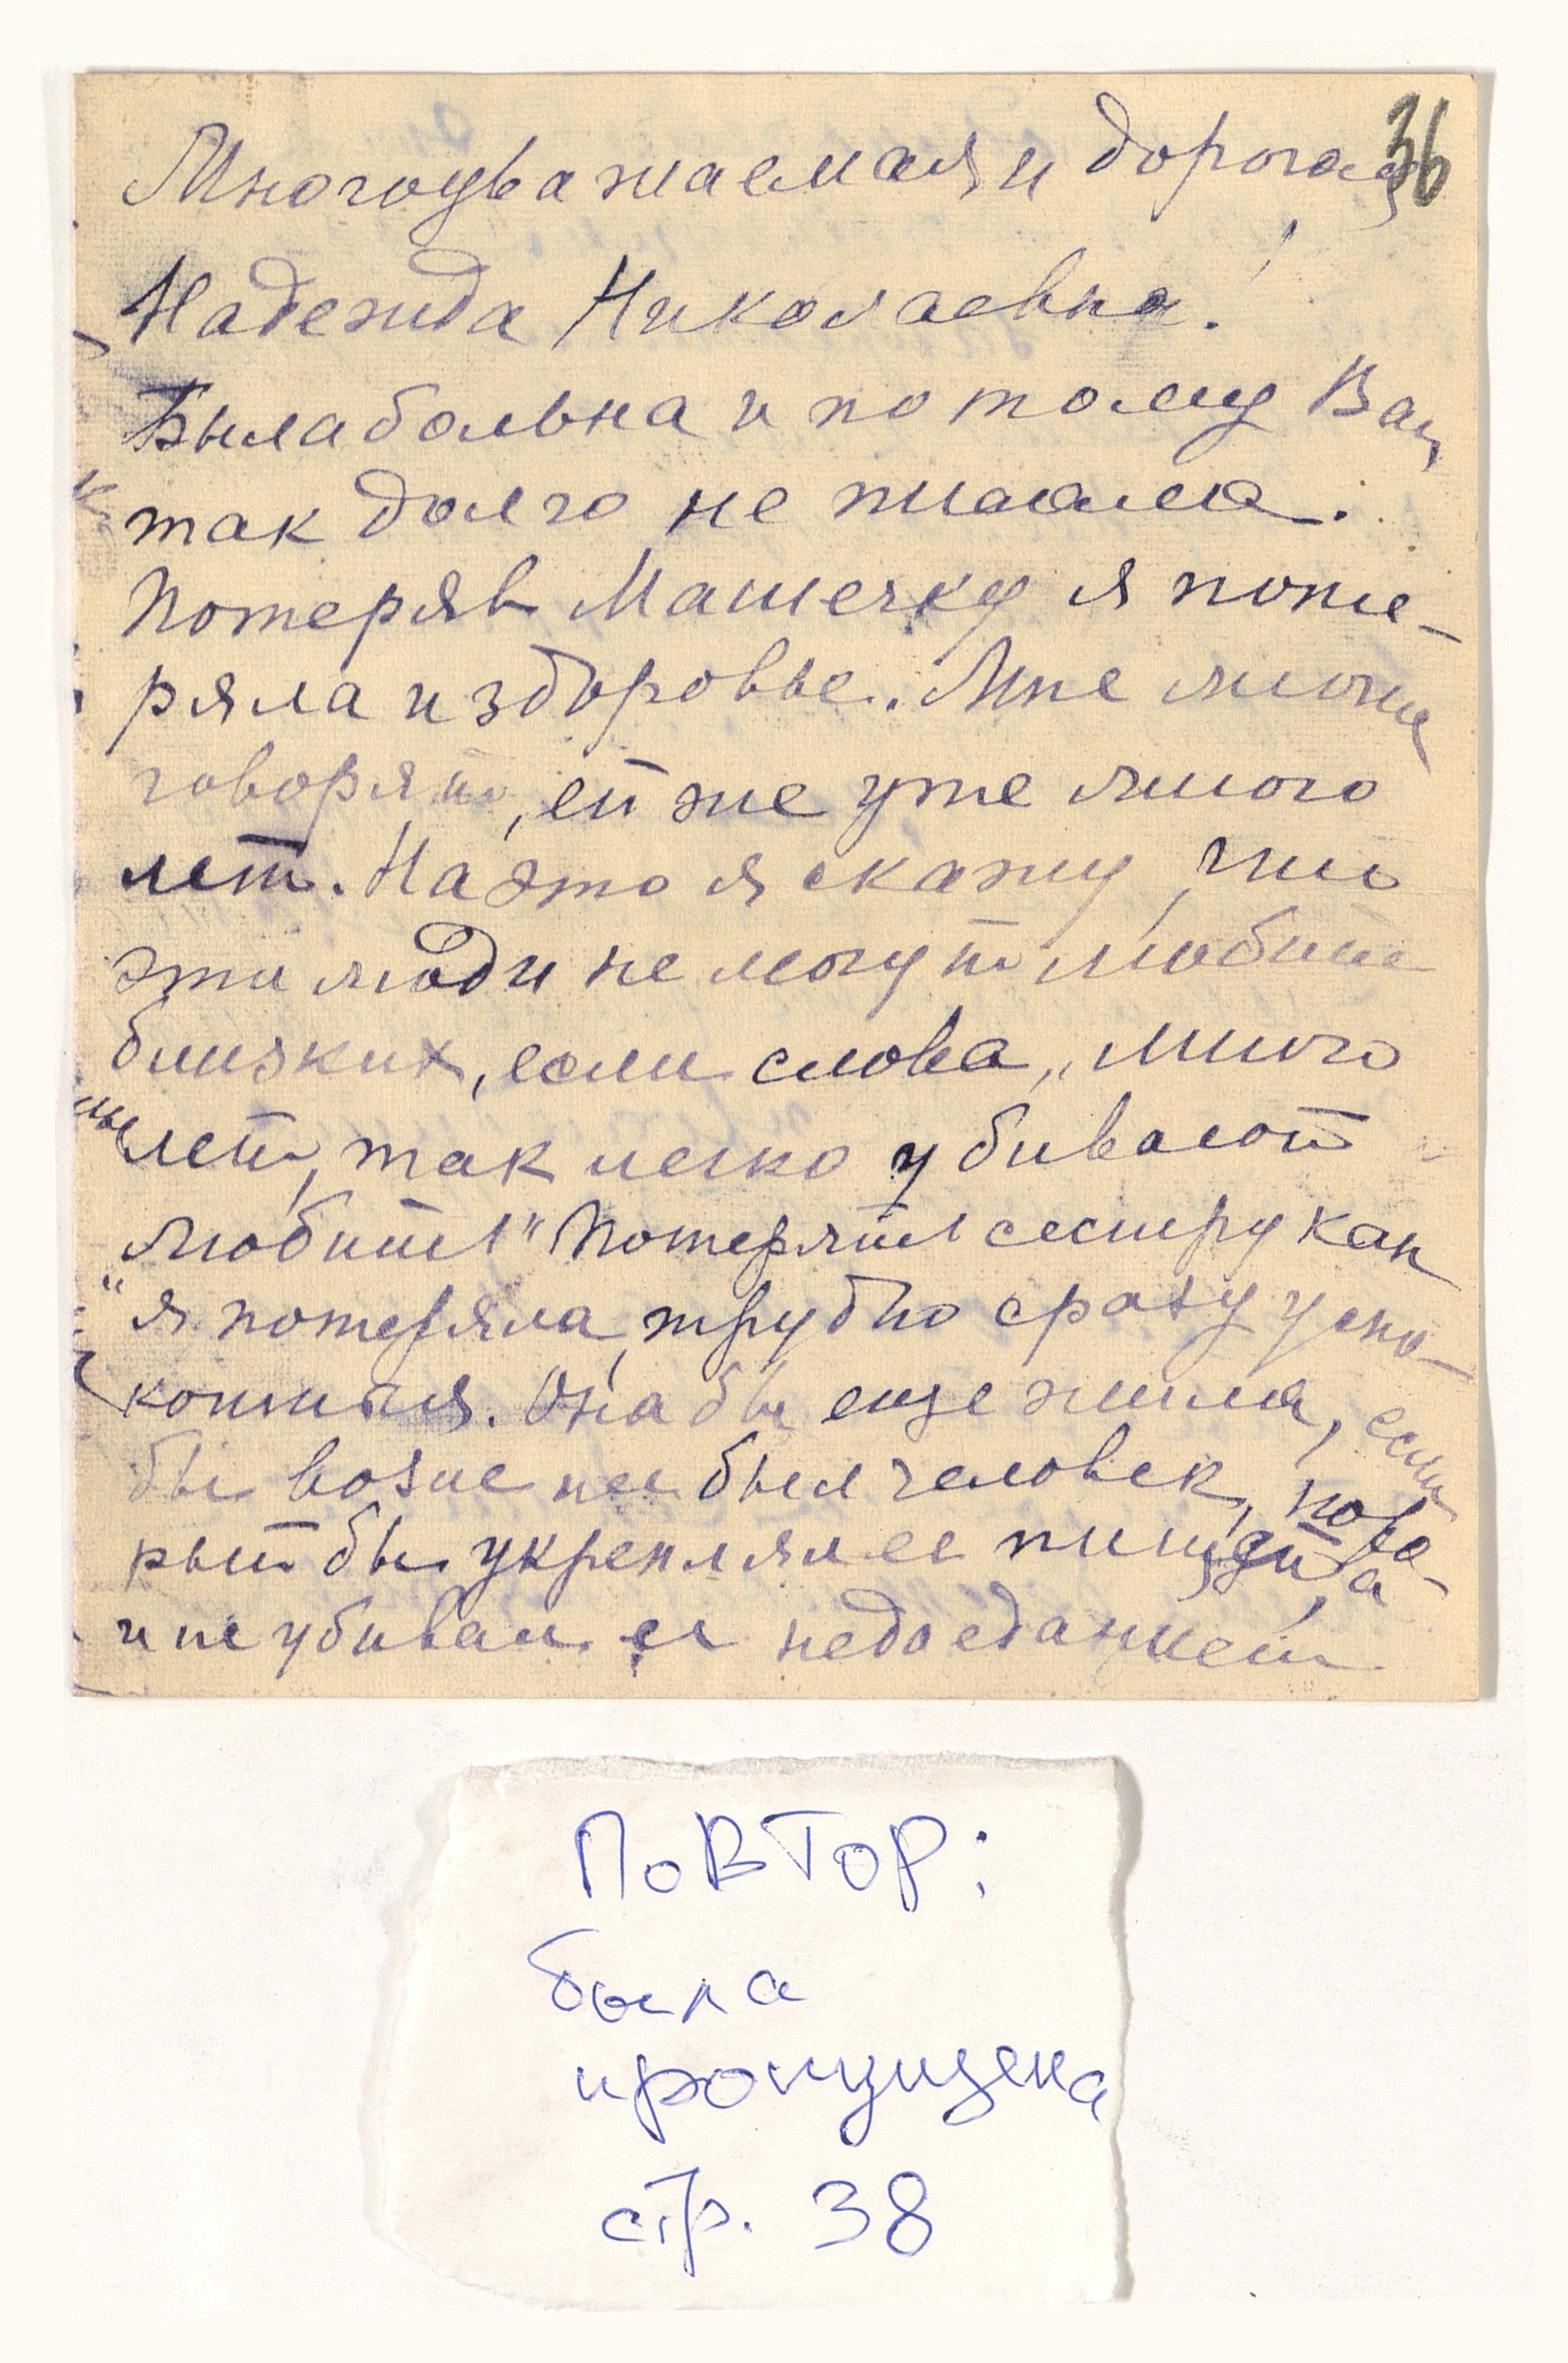 36
Многоуважаемая и дорогая
Надежда Николаевна!
Была больна и потому Вам
так долго не писала.
Потеряв Машечку я поте-
ряла и здоровье. Мне многие
говорят, ей же уже много
лет. На это я скажу, что
эти люди не могут любить
близких, если слова „много
лет, так легко убивают
любить" Потерять сестру как
"я потеряла, трудно сразу успо-
коиться. Она бы еще жила, если
бы возле нее был человек, кото-
рый бы укреплял ее пищей, а
и не убивал ее недоеданием
ПОВТОР:
была
пропущена
стр. 38